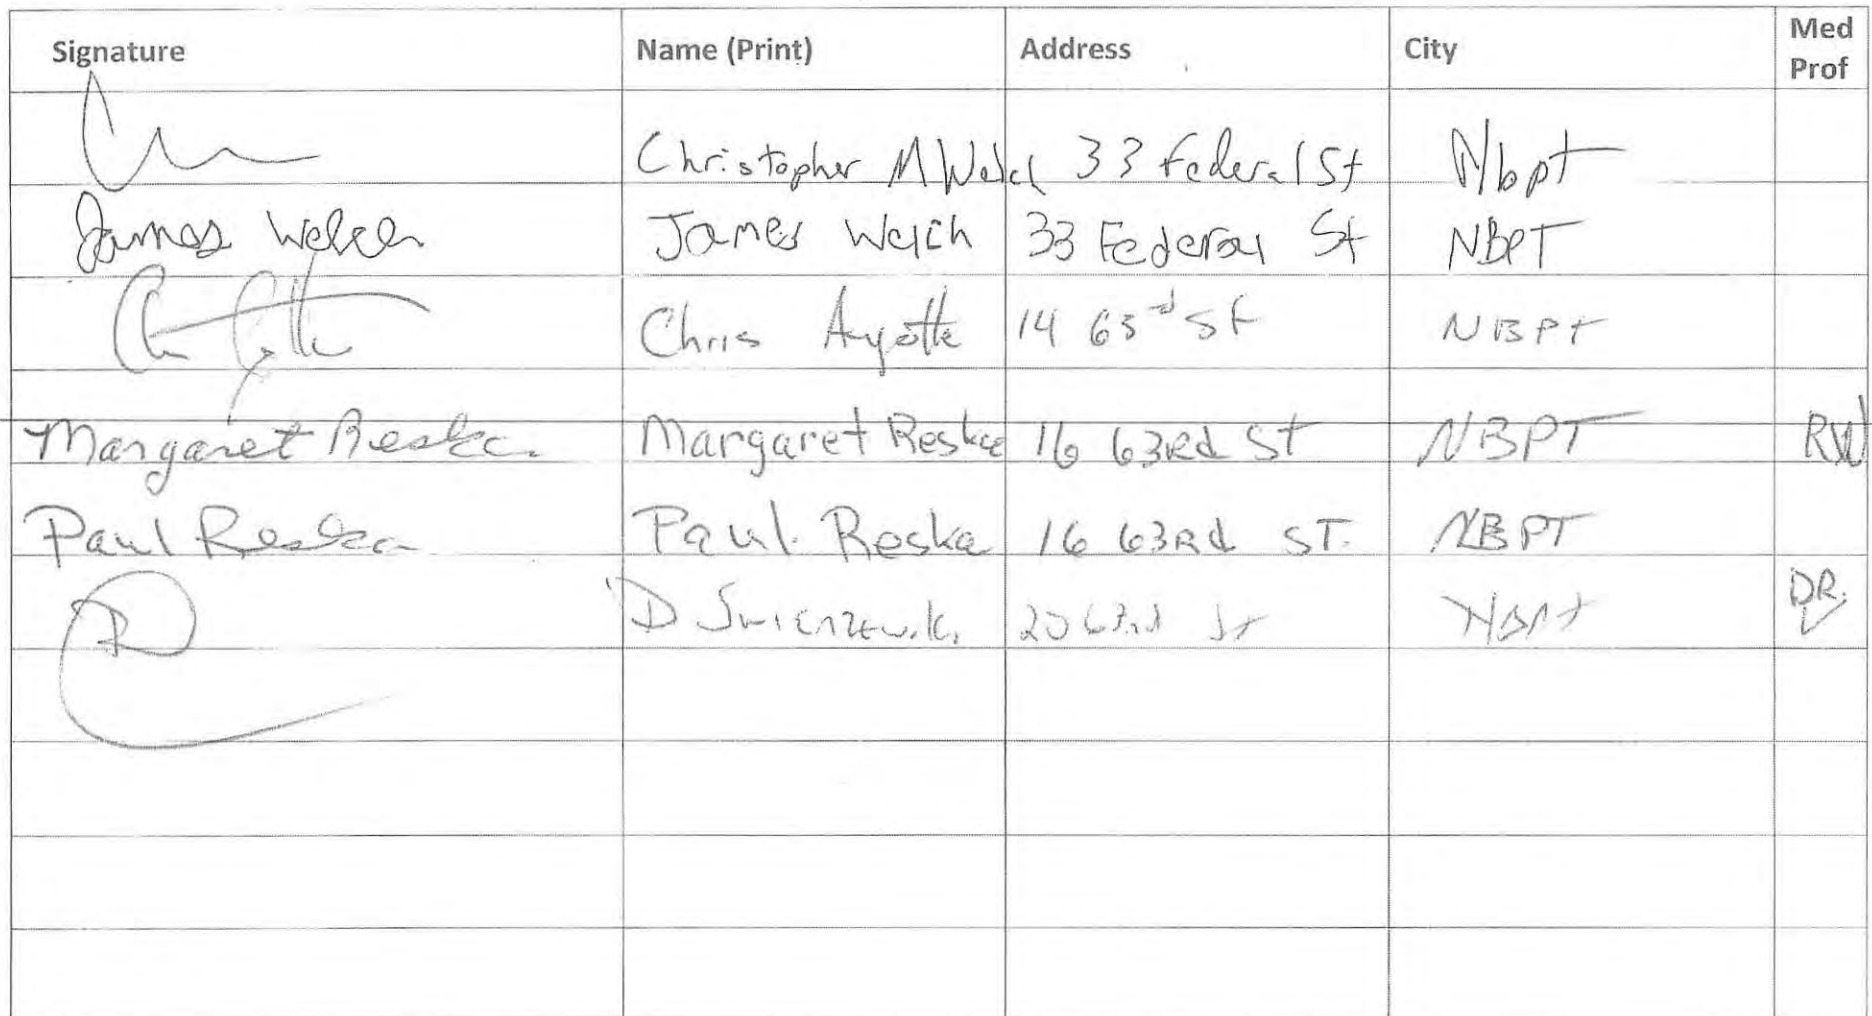 Signature Name (Print) Address City Med Prof
Christopher M Welch 33 Federal St Nbpt
James Welch James Welch 33 Federal St NBPT
Chris Ayotte 14 63rd St NBPT
Margaret Reska Margaret Reska 16 63Rd St NBPT RN
Paul Reska Paul Reska 16 63Rd ST. NBPT
D 63rd St NBPT DR.